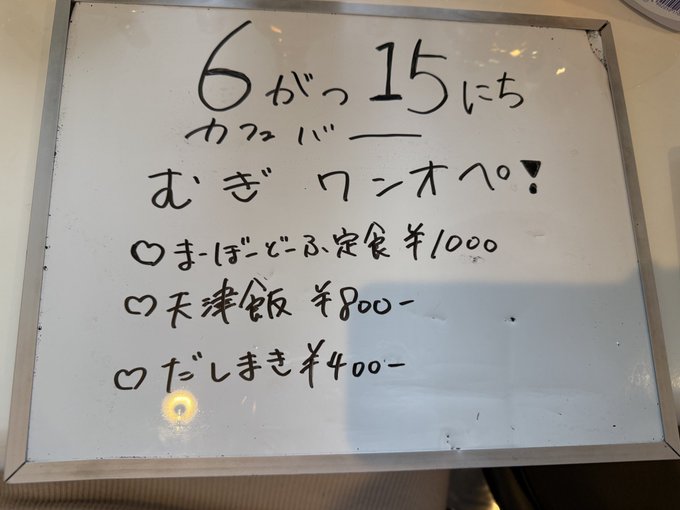 6がつ15にち
カフェバー
むぎ ワンオペ!
♡まーぼーどーふ定食 ¥1000
♡天津飯 ¥800-
♡だしまき¥400-